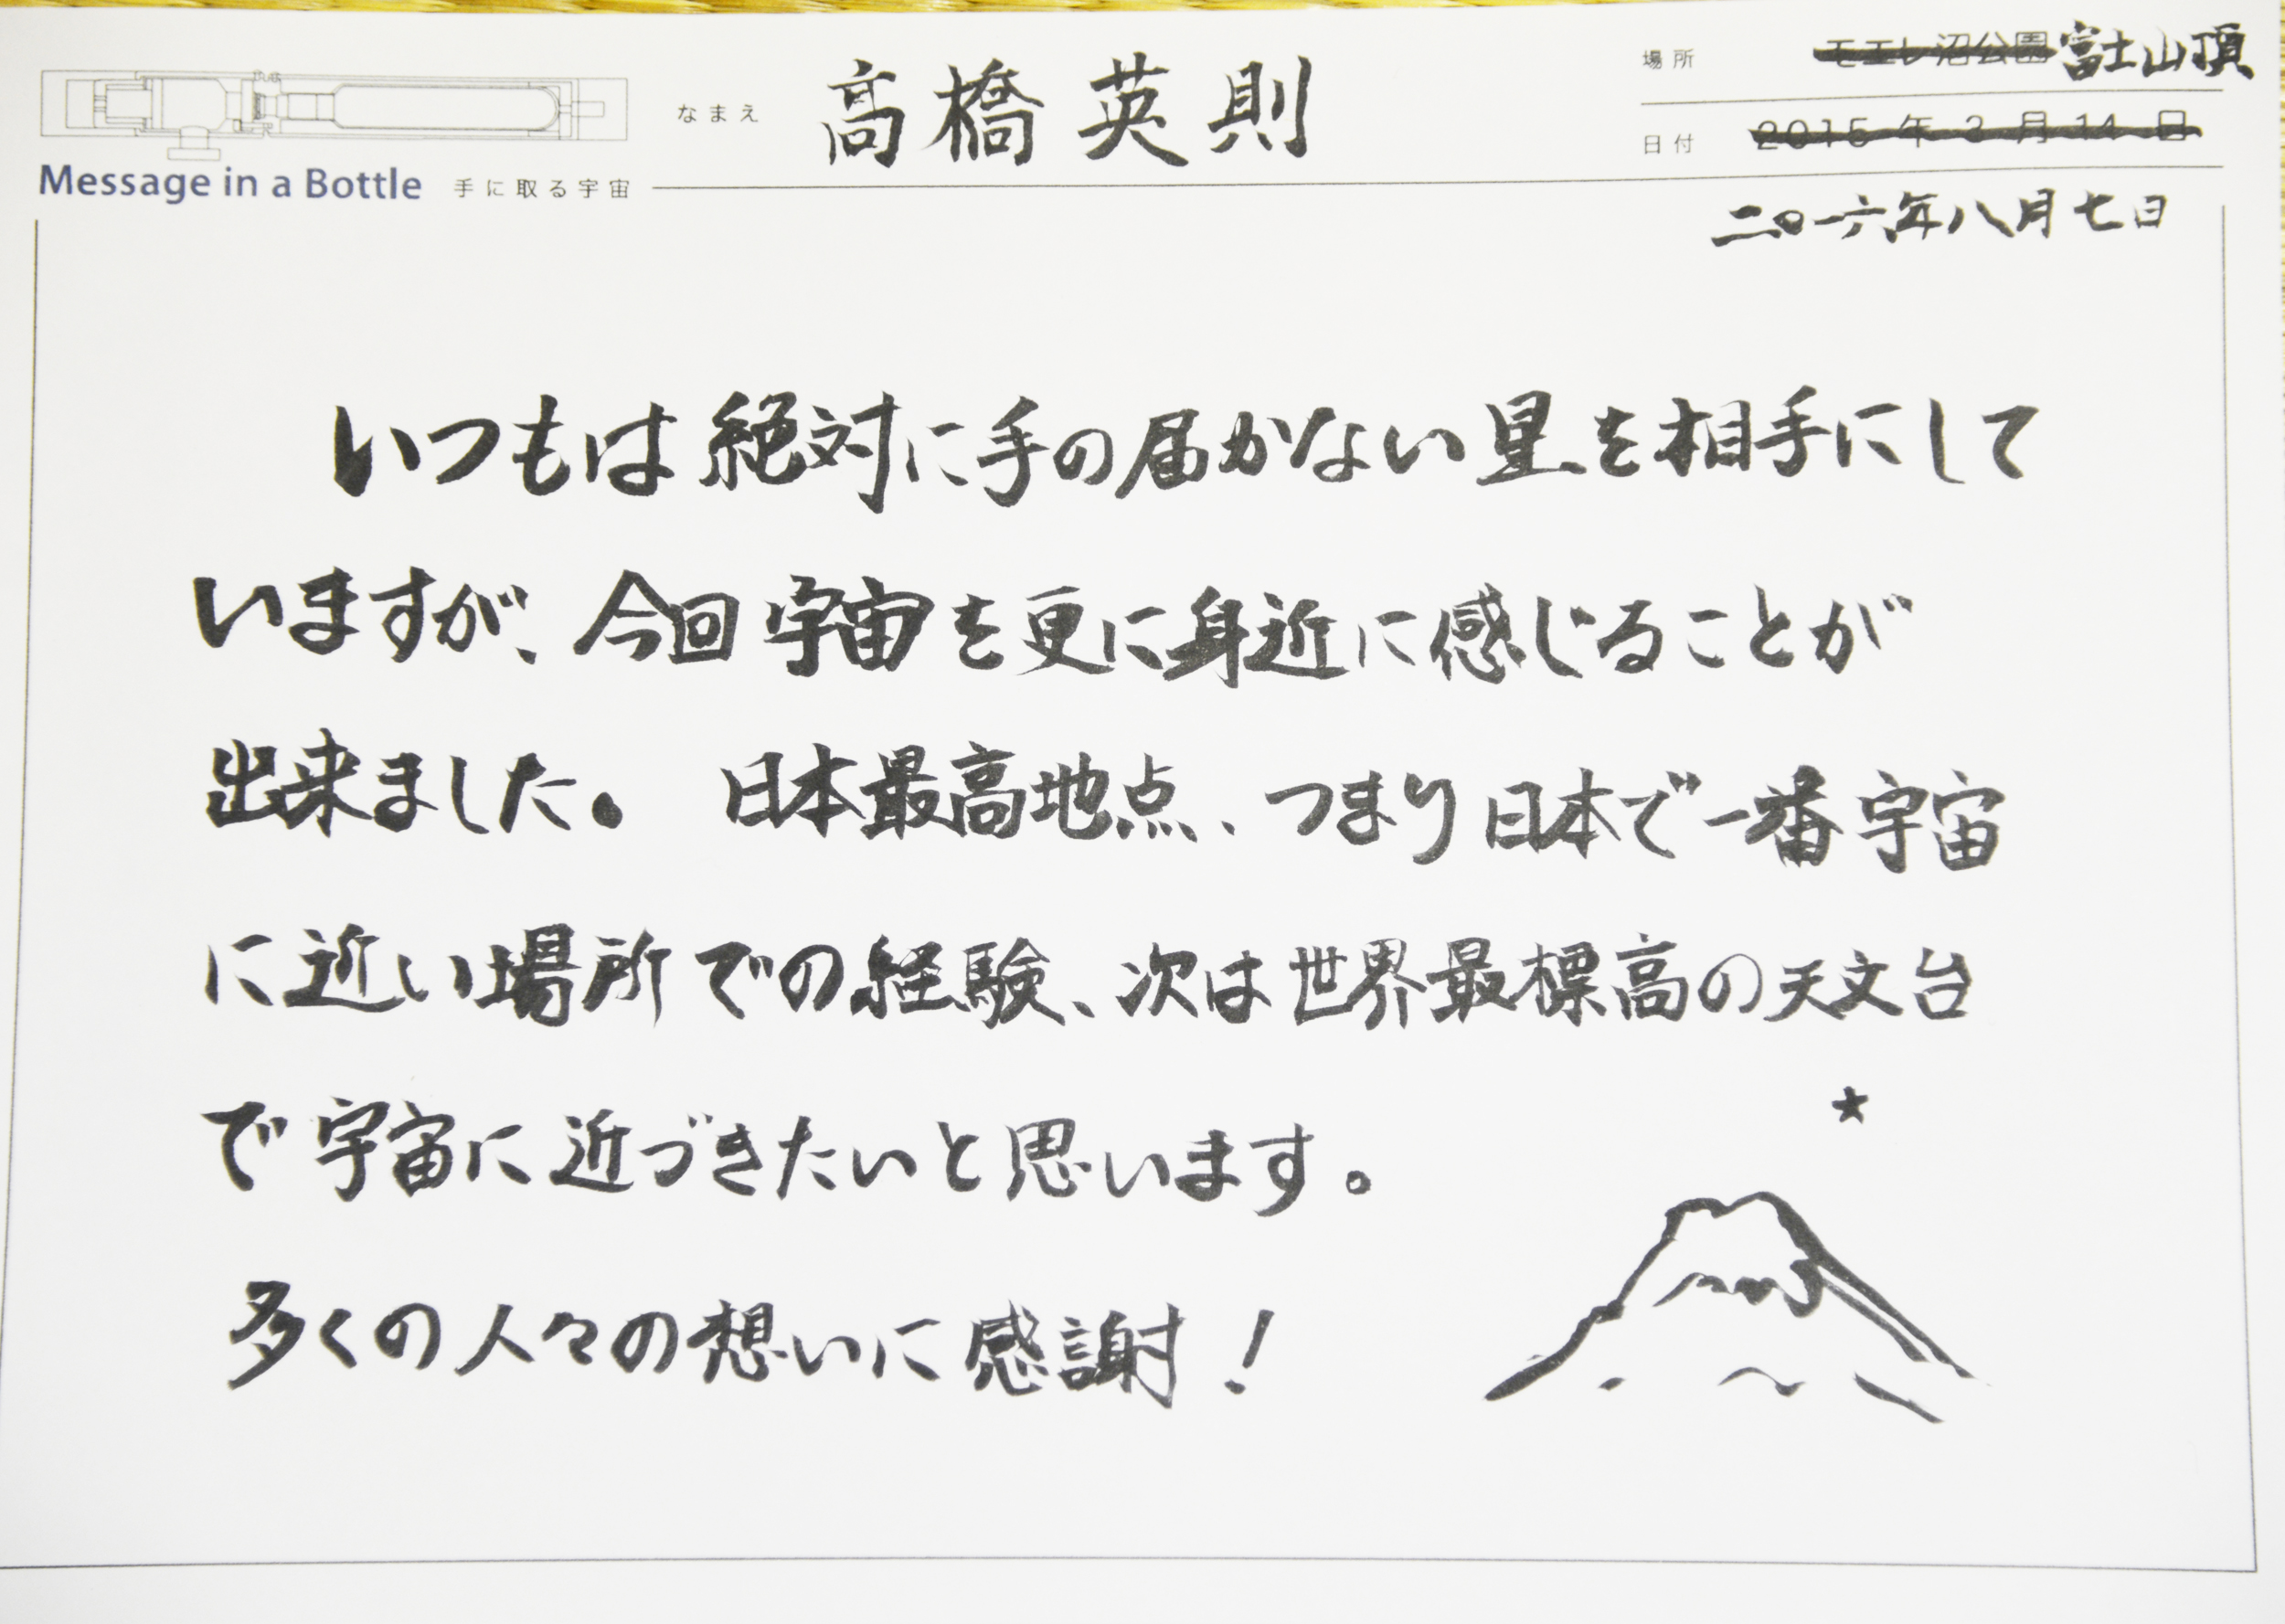 場所 モエレ沼公園 富士山頂
なまえ 高橋英則
日付 2015 年 3 月 14 日
Message in a Bottle 手に取る宇宙
二〇一六年八月七日
いつもは絶対に手の届かない星を相手にして
いますが、今回宇宙を更に身近に感じることが
出来ました。 日本最高地点、つまり日本で一番宇宙
に近い場所での経験、次は世界最標高の天文台
で宇宙に近づきたいと思います。
多くの人々の想いに感謝!